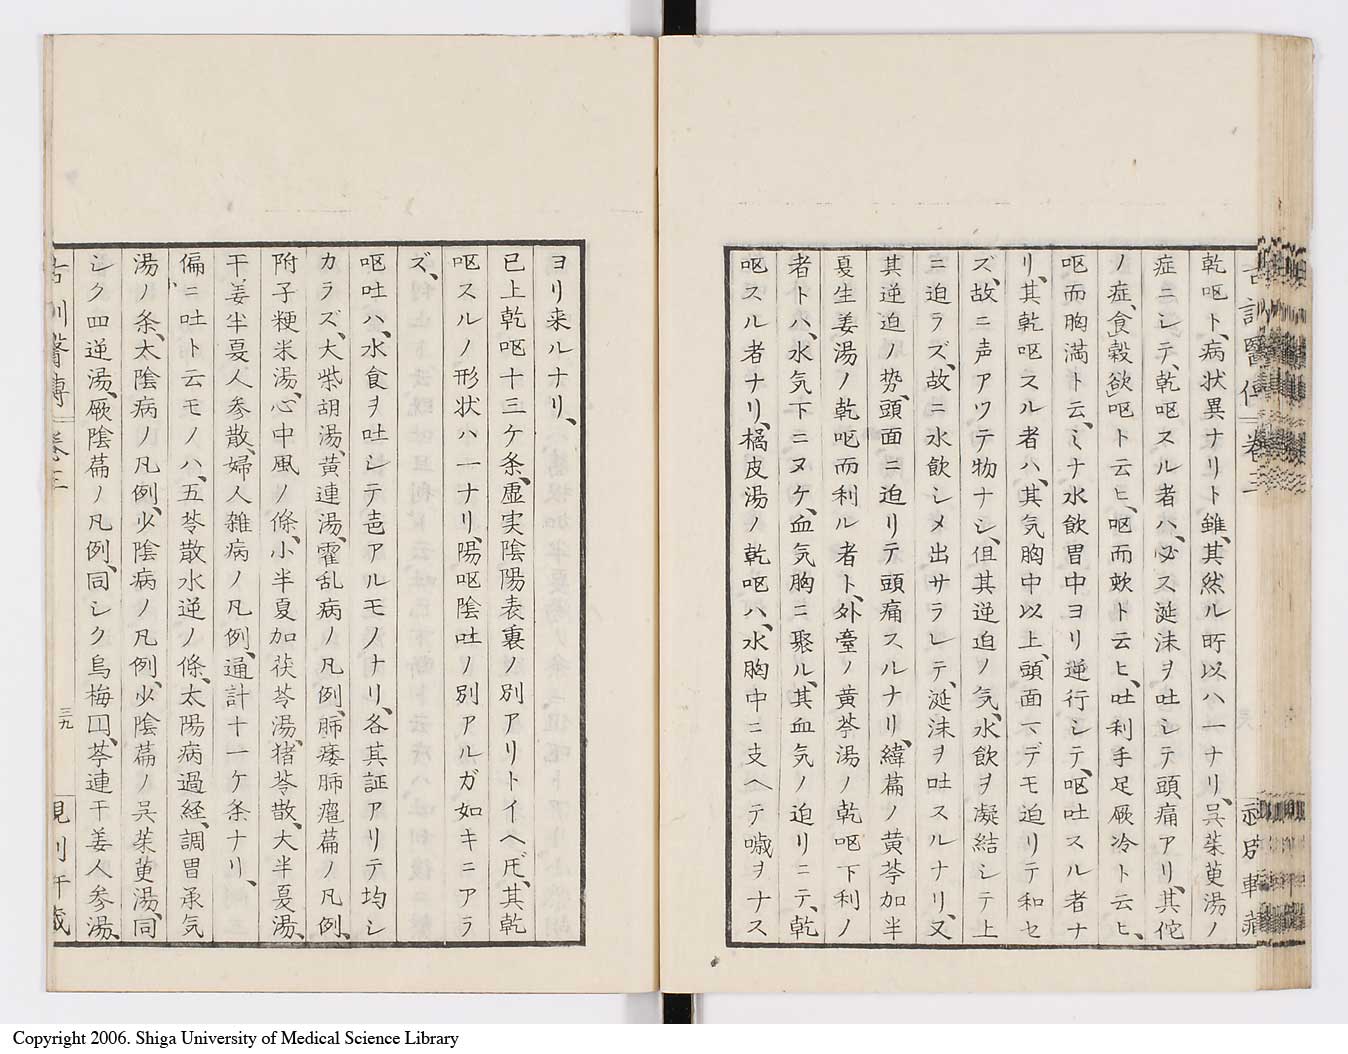 乾呕ト、病状異ナリト雖、其然ル所以ハ一ナリ、呉茱萸湯ノ
症ニシテ、乾呕スル者ハ、必ス涎沫ヲ吐シテ頭痛アリ、其佗
ノ症、「食穀欲」呕ト云ヒ、呕而欬ト云ヒ、吐利手足厥冷ト云ヒ、
呕而胸満ト云、ミナ水飲胃中ヨリ逆行シテ、呕吐スル者ナ
リ、其乾呕スル者ハ、其気胸中以上、頭面マデモ迫リテ和セ
ズ、故ニ声アツテ物ナシ、但其逆迫ノ気、水飲ヲ凝結シテ上
ニ迫ラズ、故ニ水飲シメ出サラレテ、涎沫ヲ吐スルナリ、又
其逆迫ノ势、頭面ニ迫リテ頭痛スルナリ、緯萹ノ黄芩加半
夏生姜湯ノ乾呕而利ル者ト、外臺ノ黄芩湯ノ乾呕下利ノ
者トハ、水気下ニヌケ、血気胸ニ聚ル、其血気ノ迫リニテ、乾
呕スル者ナリ、橘皮湯ノ乾呕ハ、水胸中ニ支ヘテ噦ヲナス
ヨリ来ルナリ、
已上乾呕十三ケ条、虚実陰陽表裏ノ別アリトイヘ𪜈、其乾
呕スルノ形状ハ一ナリ、陽呕陰吐ノ別アルガ如キニアラ
ズ、
呕吐ハ、水食ヲ吐シテ声アルモノナリ、各其証アリテ均シ
カラズ、大柴胡湯、黄連湯、霍乱病ノ凡例、肺痿肺癰萹ノ凡例、
附子粳米湯、心中風ノ條、小半夏加茯苓湯、猪苓散、大半夏湯、
干姜半夏人参散、婦人雑病ノ凡例、通計十一ケ条ナリ、
偏ニ吐ト云モノハ、五苓散水逆ノ條、太陽病過経、調胃承気
湯ノ条、太陰病ノ凡例、少陰病ノ凡例、少陰萹ノ呉茱萸湯、同
シク四逆湯、厥陰萹ノ凡例、同シク烏梅圓、芩連干姜人参湯、
卷三
三九
Copyright 2006. Shiga University of Medical Science Library